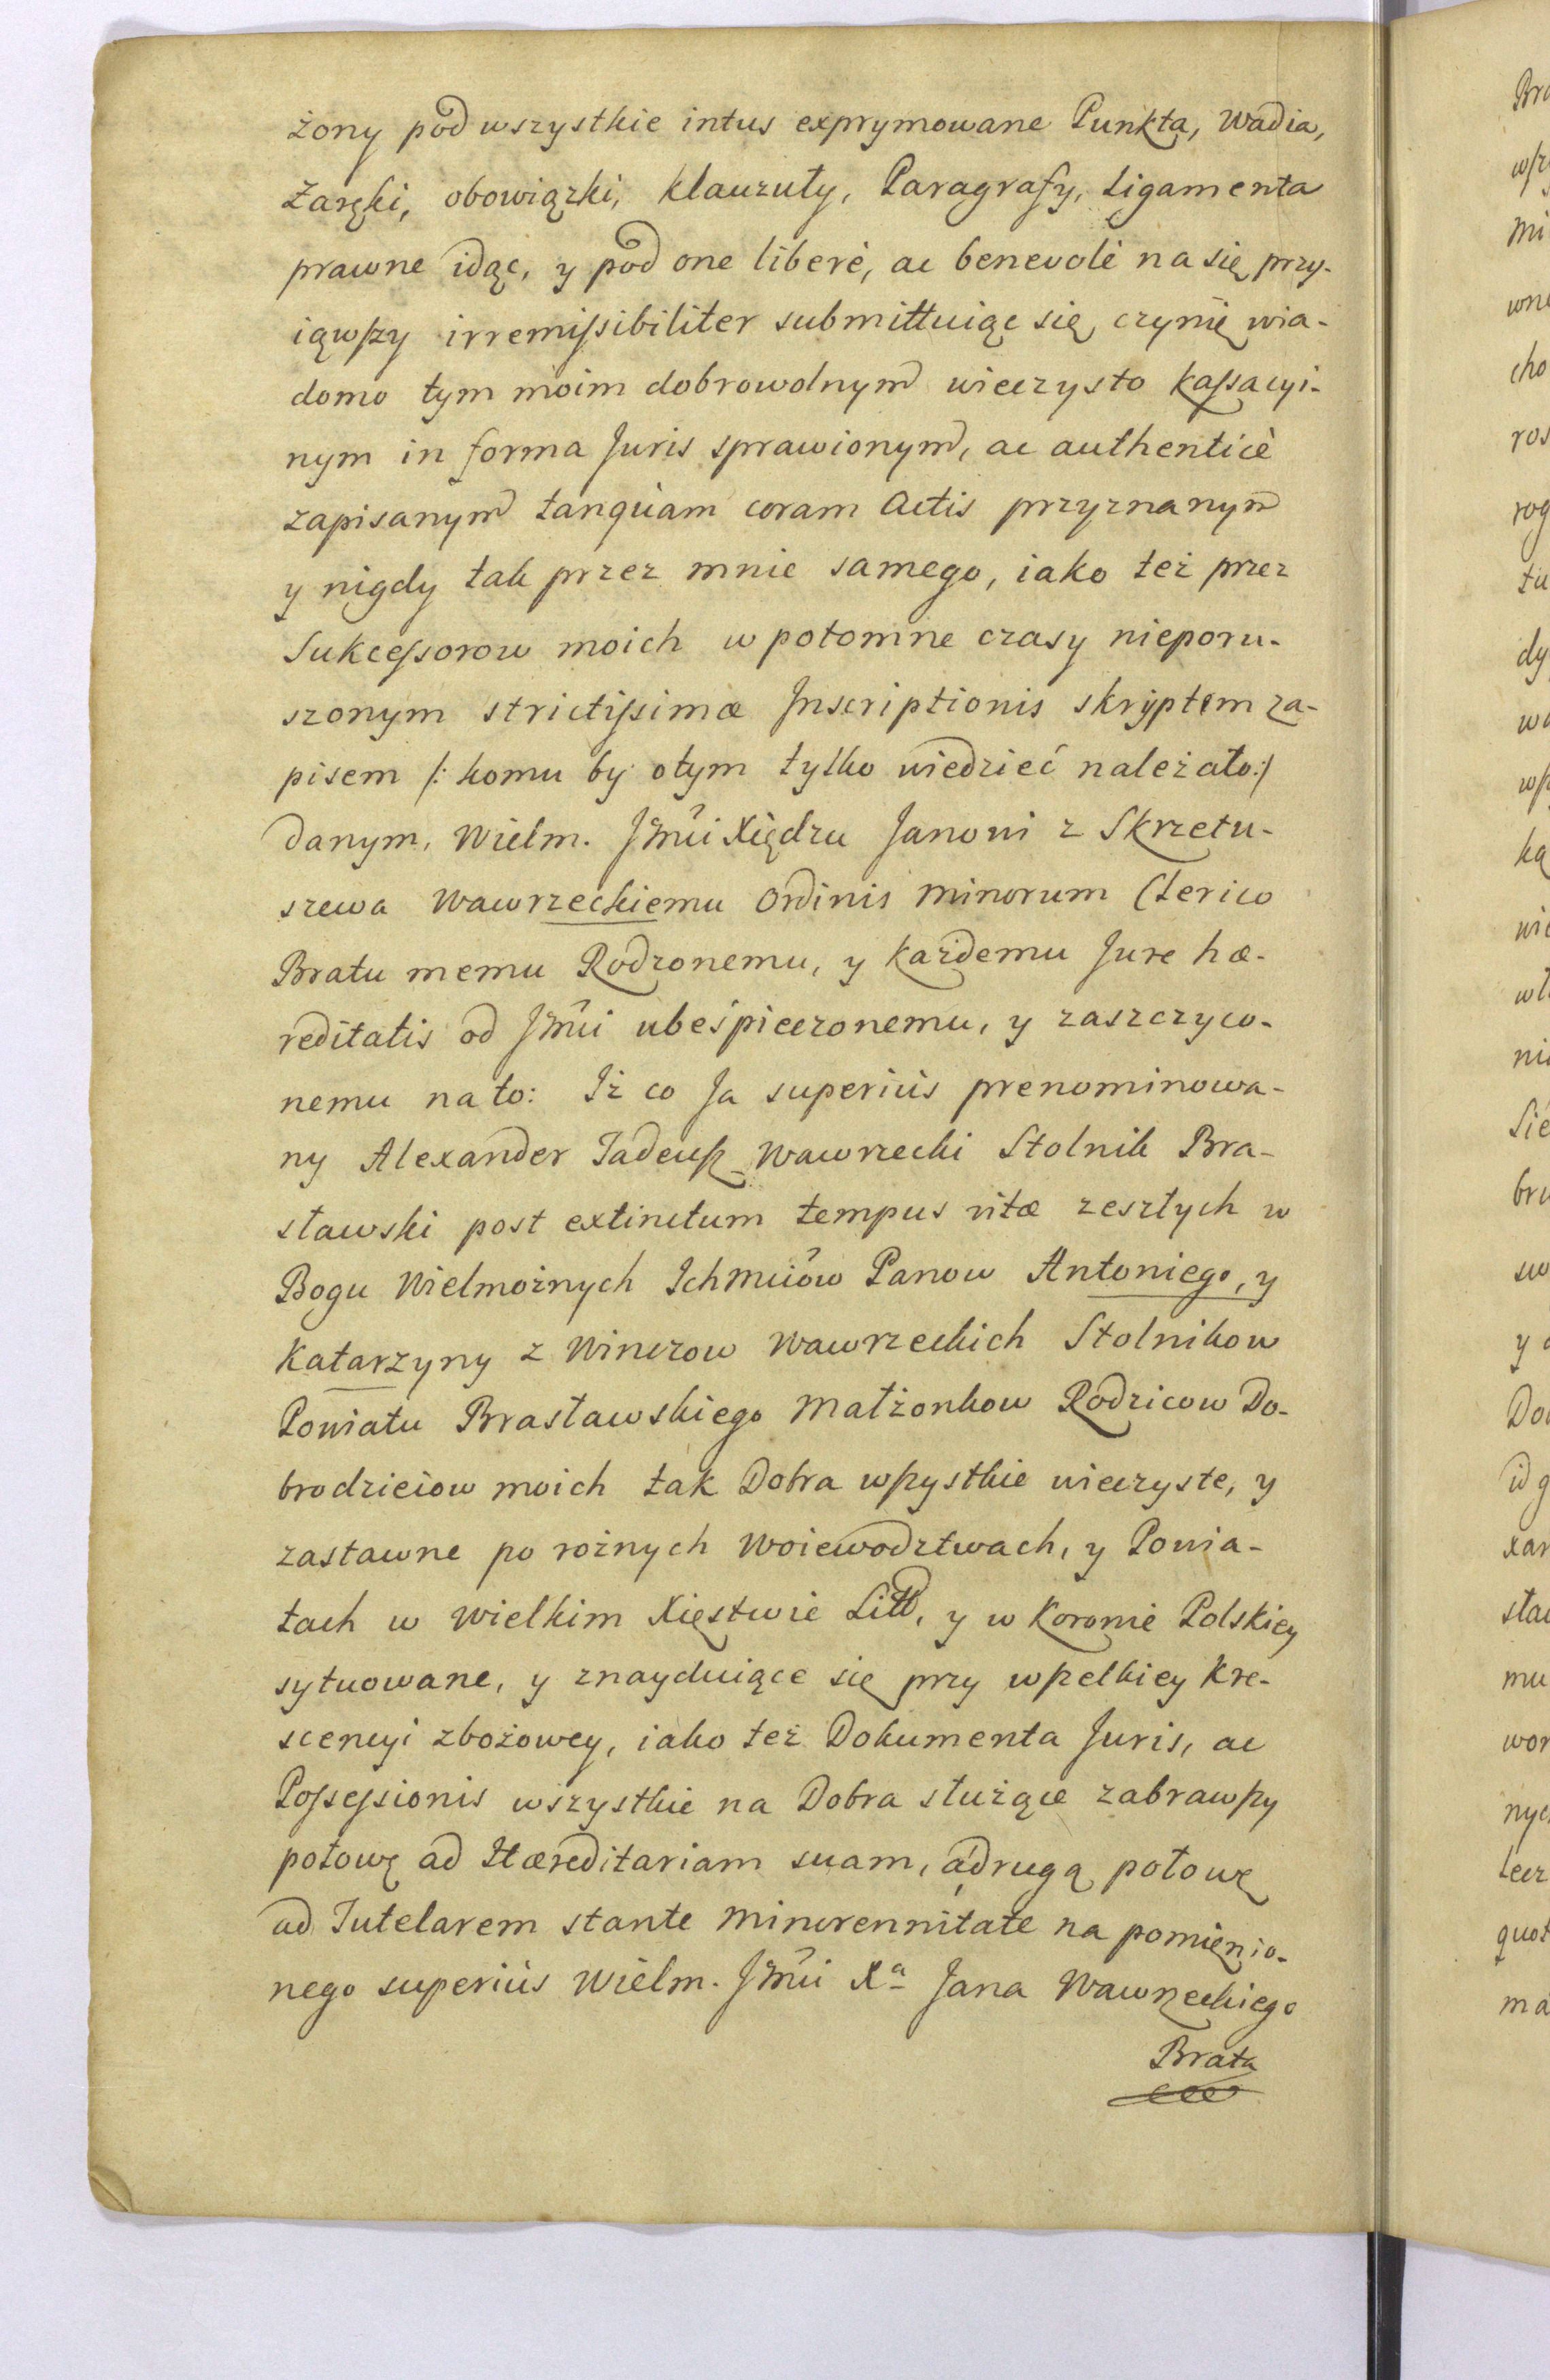 żony pod wszystkie intus exprymowane Punkta, wadia,
Zaręki, obowiązki, klauzuły, Paragrafy, Ligamenta
prawne idąc, y pod one liberè, ac benevolè na się przy-
iąwszy irremissibiliter submittuiąc się, czynię wia-
domo tym moim dobrowolnym wieczysto kassacyi-
nym in forma Juris sprawionym, ac authenticè
zapisanym tanquam coram Actis przyznanym
y nigdy tak przez mnie samego, iako też przez
Sukcessorow moich w potomne czasy nieporu-
szonym strictissimæ Inscriptionis skryptem za-
pisem /: komu by o tym tylko wiedzieć należało :/
danym, Wielm. Jmći Xiędzu Janowi z Skrzetu-
szewa Wawrzeckiemu Ordinis Minorum Clerico
Bratu memu Rodzonemu, y każdemu Jure hæ-
reditatis od Jmći ubeśpieczonemu, y zaszczyco-
nemu na to: Iż co Ja superiùs prenominowa-
ny Alexander Tadeusz Wawrzecki Stolnik Bra-
sławski post extinctum tempus vitæ zeszłych w
Bogu Wielmożnych Ichmciów Panow Antoniego, y
Katarzyny z Winczow Wawrzeckich Stolnikow
Powiatu Brasławskiego Małżonkow Rodzicow Do-
brodzieiow moich tak Dobra wszystkie wieczyste, y
zastawne po rożnych Woiewodztwach, y Powia-
tach w Wielkim Xięstwie Litt, y w Koronie Polskiey
sytuowane, y znayduiące się przy wszelkiey Kre-
scencyi zbożowey, iako też Dokumenta Juris, ac
Possessionis wszystkie na Dobra służące zabrawszy
połowę ad Hæreditariam suam, á drugą połowę
ad Tutelarem stante minorennitate na pomienio-
nego superiùs Wielm. Jmći Xa Jana Wawrzeckiego
Brata